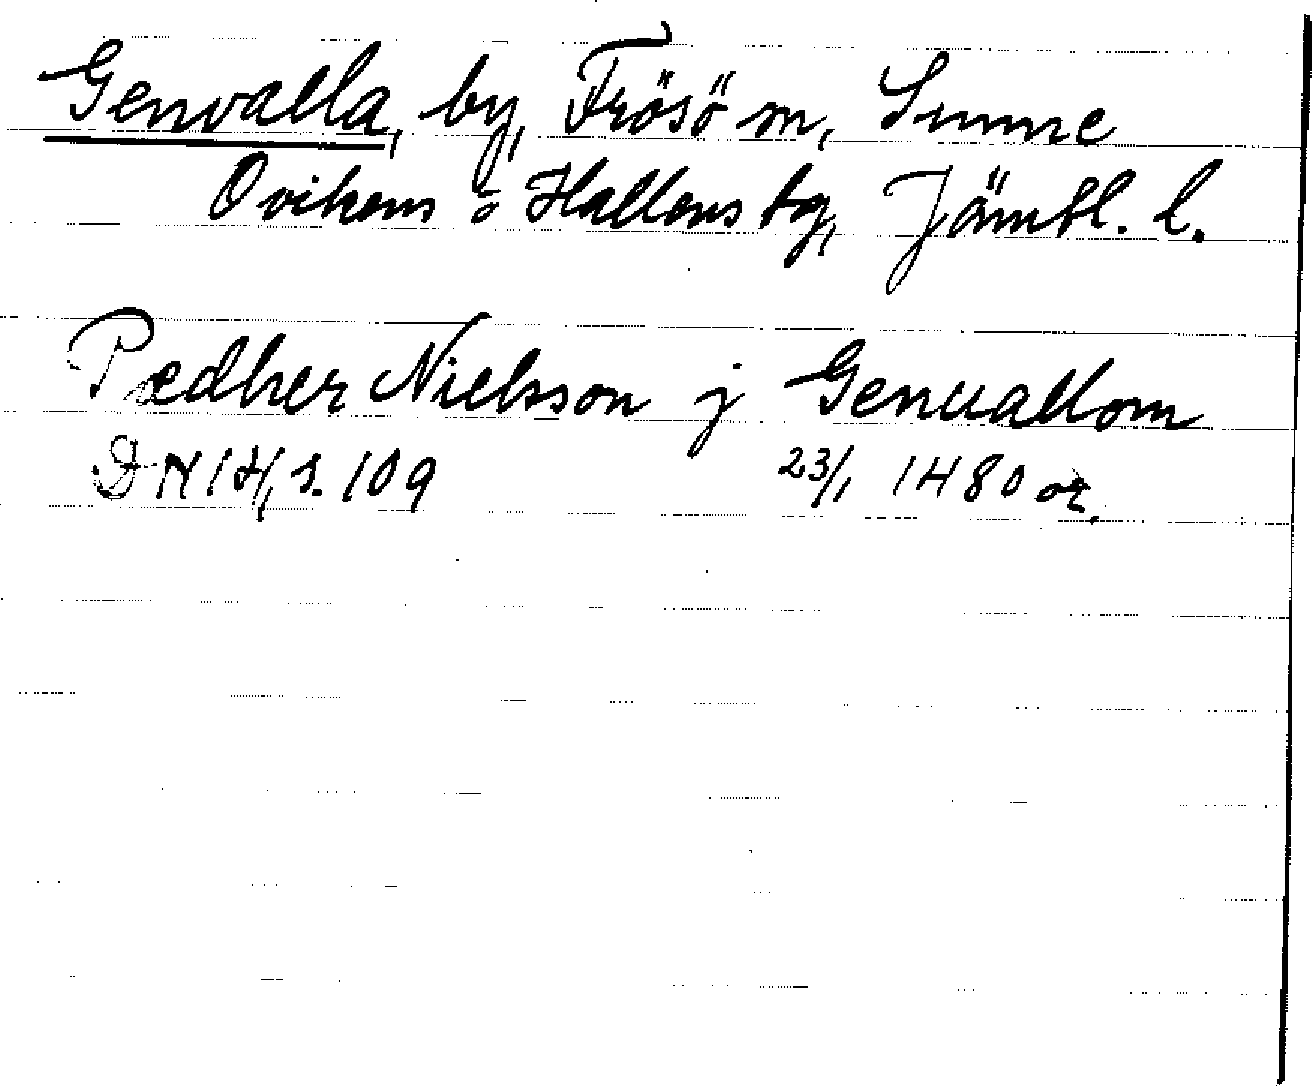 Genvalla, by, Frösö sn, Sunne
Ovikens o Hallens tg, Jämtl. l.
Pædher Nielsson j Genuallom
DN 14, s. 109 23/1 1480 or.